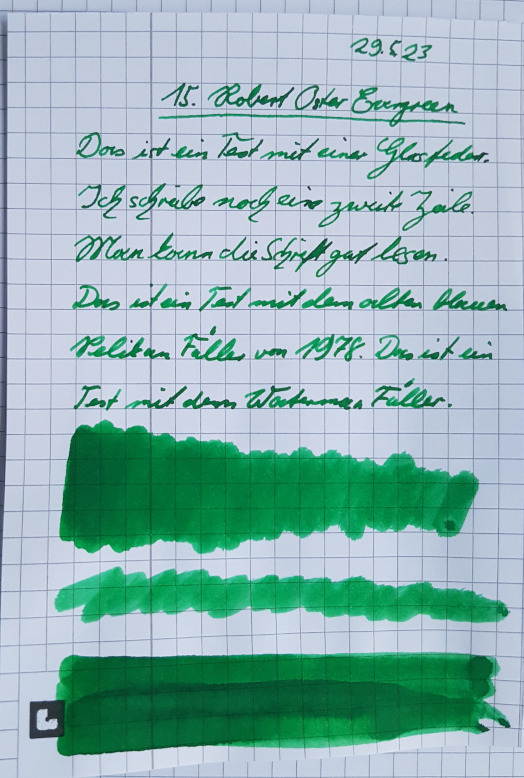 29.5.23
15. Robert Oster Evergreen
Das ist ein Test mit einer Glasfeder.
Ich schreibe noch eine zweite Zeile.
Man kann die Schrift gut lesen.
Das ist ein Test mit dem alten blauen
Pelikan Füller von 1978. Das ist ein
Test mit dem Waterman Füller.